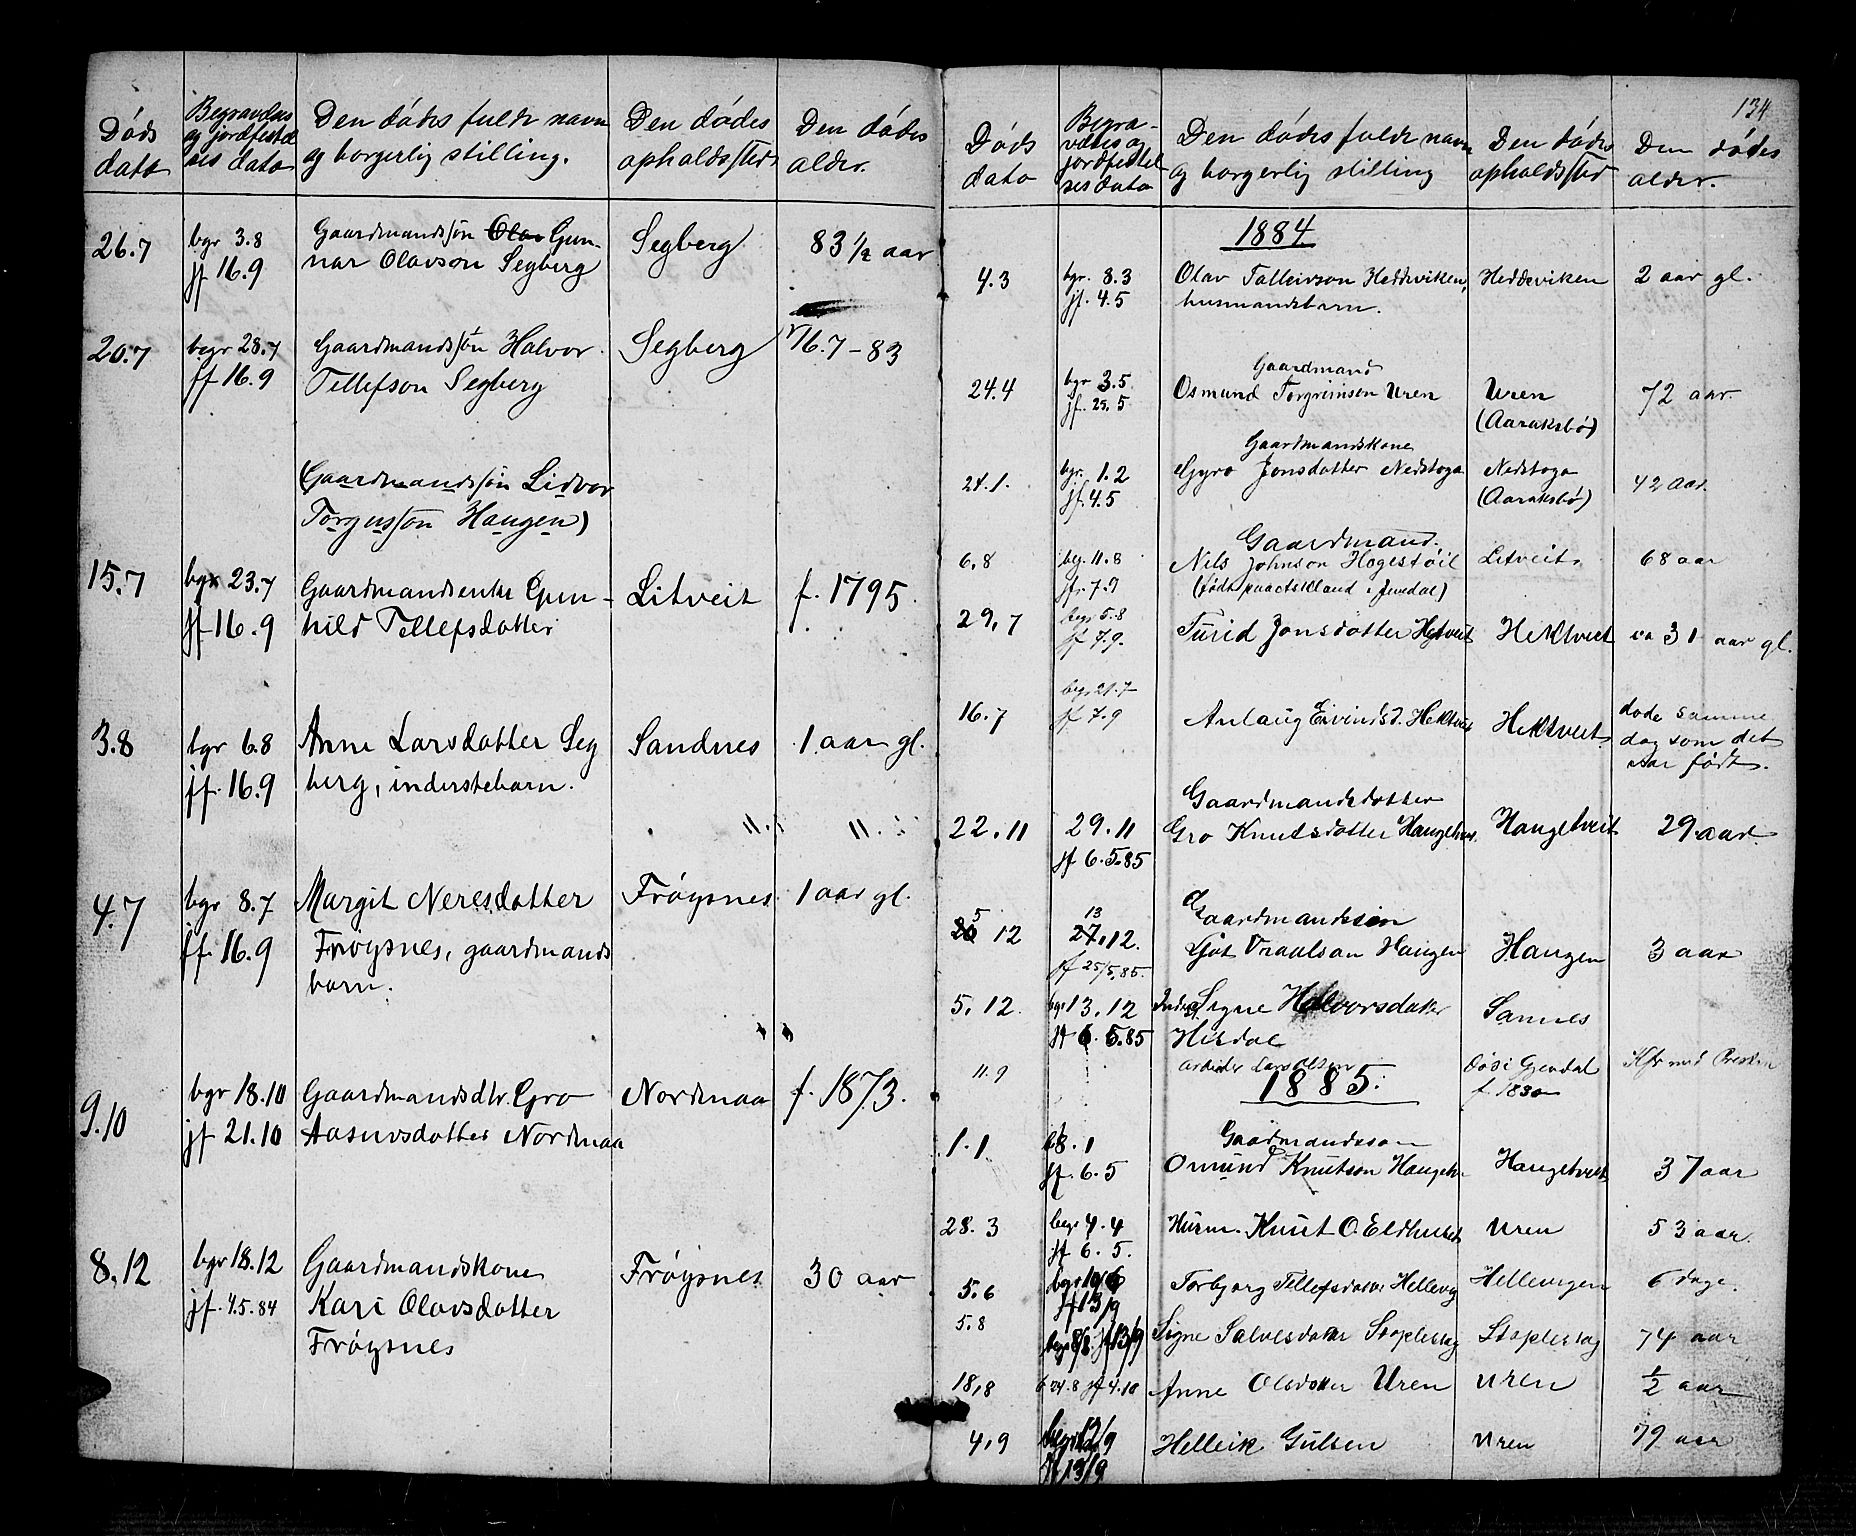 Døds
dato
Begravelses
og jordfestel
ses dato
Den dødes fulde navn
og borgerlig stilling.
Den dødes
opholdssted
Den dødes
alder.
26.7
bgr 3.8
jf 16.9
Gaardmandssøn Olav Gun-
nar Olavson Segberg
Segberg
83 1/2 aar
20.7
begr 28.7
jf 16.9
Gaardmandssøn Halvor
Tellefson Segberg
Segberg
16.7-83
(Gaardmandssøn Lidvor
Torgusson Haugen)
15.7
bgr 23.7
jf 16.9
Gaardmandsenke Gun-
hild Tellefsdatter
Litveit
f. 1795.
3.8
bgr 6.8
jf. 16.9
Anne Larsdatter Seg
berg, inderstebarn.
Sandnes
1 aar gl.
4.7
bgr 8.7
jf. 16.9
Margit Neresdatter
Frøysnes, gaardmands
barn.
Frøysnes
1 aar gl.
9.10
bgr 18.10
jf 21.10
Gaardmandsdtr. Gro
Aasuvsdatter Nordnaa
Nordnaa
f. 1873.
8.12
bgr 18.12
jf. 4.5.84
Gaardmandskone
Kari Olavsdatter
Frøysnes
Frøysnes
30 aar
134
Døds
dato
Begra-
velses og
jordfestel
ses dato
Den dødes fulde navn
og borgerlig stilling
Den dødes
opholdssted
Den dødes
alder.
1884
4.3
bgr. 8.3
jf. 4.5
Olav Talleivson Heddeviken,
husmandsbarn.
Heddeviken
2 aar gl.
24.4
bgr 3.5
jf. 25.5
Gaardmand
Osmund Torgrimsen Uren
Uren
(Aaraksbø)
72 aar.
24.1.
bgr. 1.2
jf. 4.5
Gaardmandskone
Gyro Jonsdatter Nedstoga
Nedstoga
(Aaraksbø)
42 aar
6.8
beg. 11.8
jf. 7.9
Gaardmand.
Nils Johnson Hogestøil
(født paa Askland i Jevedal)
Litveit
68 aar
29.7
begr 5.8
jf 7.9.
Turid Jonsdatter Hektveit
Hektveit
ca 31 aar gl.
16.7
begr 21.7
jf 7.9
Anlaug Eivindsd. Hektveit
Hektveit
døde samme
dag som det
var født.
22.11
29.11
jf 6.5.85
Gaardmandsdotter
Gro Knutsdatter Haugetveit
Haugetveit
29 aar
5
20 12
13
27.12.
jf 25/5.85.
Gaardmandssøn
Gjut Draalson Haugen
Haugen
3 aar
5.12.
bgr 13.12
jf 6.5.85
Inders. Signe Halvorsdatter
Hisdal
Sannes
11.9
arbeider Lars Olsen
Døsi Gjevdal
f. 1830
Kfr med Presten
1885.
1.1
b8.1
jf. 6.5
Gaardmandsson
Omund Knutson Haugetv.
Haugetveit
37 aar
28.3
begr 4.4
jf 6.5.
Husm. Knut O. Eldhuset
Uren
53 aar.
5.6
bgr 10/6
jf 13/9
Torbjørg Tellefsdatter Hellevig
Hellevigen
6 dage.
5.8
begr 8/8. jf 13/9
Signe Salvesdatter Stoplestog
Stoplestog
74 aar
18.8
b 24.8 jf 4.10
Anne Olsdatter Uren
Uren
1/2 aar
4.9
begr 12/9
jf 13/9
Helleik Gulsen
Uren
79 aar